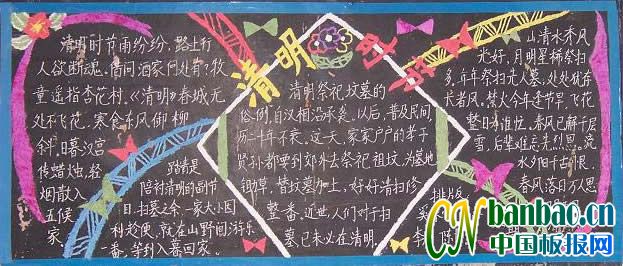 清明
清明时节雨纷纷,路上行
人欲断魂。借问酒家何处有?牧
童遥指杏花村。《清明》春城无
处不飞花,寒食东风御柳
斜,日暮汉宫
传蜡烛,轻
烟散入
五侯
家
踏青是
陪衬清明的副节
日,扫墓之余,一家大小图
利趁便,就在山野间游乐
一番,等到入暮回家。
清明祭祀坟墓的
俗例,自汉相沿承袭。以后,普及民间,
历二千年不衰。这一天,家家户户的孝子
贤孙都要到郊外去祭祀祖坟,为墓地
锄草,替坟墓加土,好好清扫修
整一番,近世人们对于扫
墓,已未必在清明。
山清水秀风
光好,月明星稀祭扫
多,
年年祭扫先人墓,处处犹存
长者风。禁火今年逢节早,飞花
整日
春风已解千层
雪,后辈难忘先烈恩。
流
水夕阳千古恨,
春风落日万人思
排版
CN banbao.cn
中国板报网